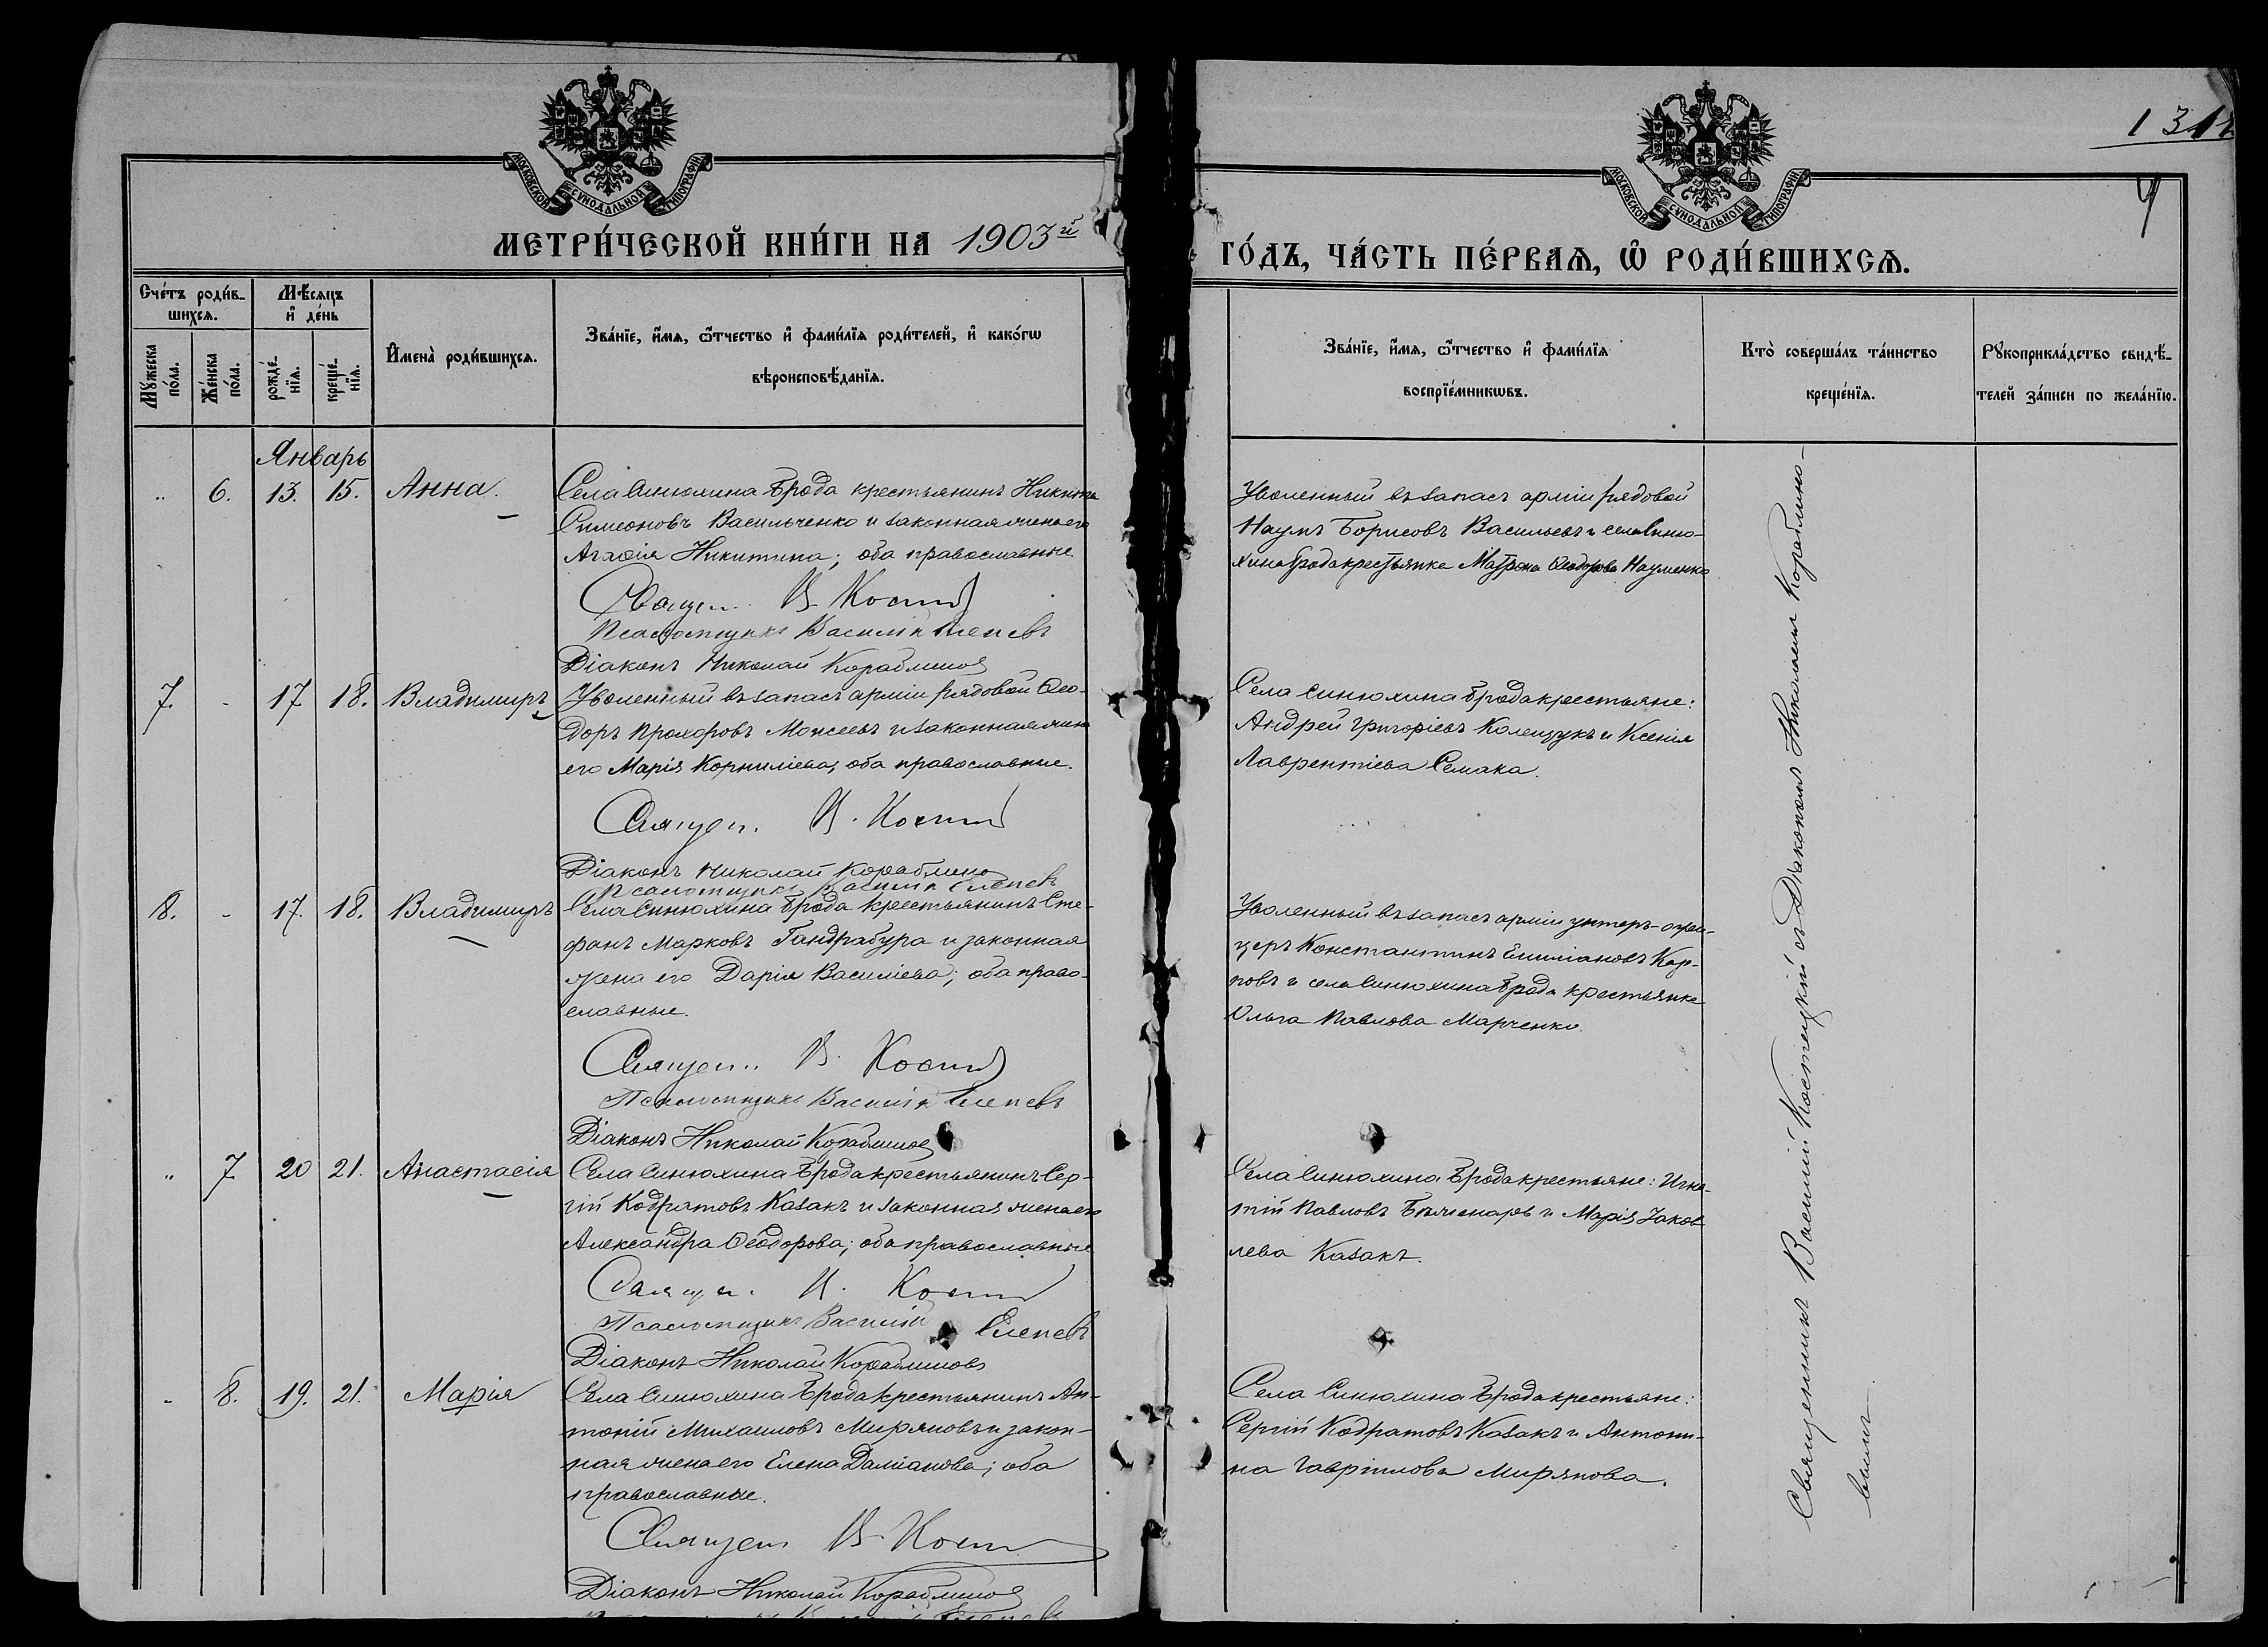 1314
МОСКОВСКОЙ СѴНОДАЛЬНОЙ ТИПОГРАФІИ
МОСКОВСКОЙ СѴНОДАЛЬНОЙ ТИПОГРАФІИ
МЕТРИ́ЧЕСКОЙ КНИ́ГИ НА 1903й
ГО́ДЪ, ЧА́СТЬ ПЕ́РВАѦ, Ѽ РОДИ́ВШИХСѦ.
Сче́тъ роди́в-
шихсѧ.
Мѣ́сѧцъ
и҆ де́нь
Мꙋ́жеска
по́ла.
Же́нска
по́ла.
рожде́-
нїѧ.
креще́-
нїѧ.
И҆мена̀ роди́вшихсѧ.
Зва́нїе, и҆́мѧ, ѻ҆́тчество и҆ фами́лїѧ роди́телей, и҆ како́гѡ
вѣроисповѣ́данїѧ.
Зва́нїе, и҆́мѧ, ѻ҆́тчество и҆ фами́лїѧ
воспрїе́мникѡвъ.
Кто̀ соверша́лъ та́инство
креще́нїѧ.
Рꙋкоприкла́дство свидѣ́-
телей за́писи по жела́нїю.
Январь
„ 6. 13. 15. Анна.
Села Синюхина Брода крестьянинъ Никита
Симеоновъ Васильченко и законная жена его
Агафія Никитина; оба православные
Священ. В. Кости
Псаломщикъ Василій Слепевъ
Діаконъ Николай Кораблиновъ
Уволенный въ запасъ арміи рядовой
Наумъ Борисовъ Васильевъ и села Синю-
хина Брода крестьянка Матрона Ѳеодорова Науменко
7. - 17 18. Владимиръ
Уволенный въ запасъ арміи рядовой Ѳео-
доръ Прохоровъ Моисеевъ и законная жена
его Марія Корниліева; оба православные.
Священ. В. Кости
Діаконъ Николай Кораблино
Псаломщикъ Василій Слепевъ
Села Синюхина Брода крестьяне:
Андрей Григоріевъ Колещукъ и Ксенія
Лаврентіева Семака.
8. - 17. 18. Владимиръ
Села Синюхина Брода крестьянинъ Сте-
фанъ Марковъ Гандрабура и законная
жена его Дарія Василіева; оба право-
славные.
Священ. В. Кости
Псаломщикъ Василій Слепевъ
Діаконъ Николай Кораблинов
Уволенный въ запасъ арміи унтеръ-офи-
церъ Константинъ Емиліановъ Кар-
повъ и села Синюхина Брода крестьянка
Ольга Павлова Марченко.
„ 7. 20 21. Анастасія
Села Синюхина Брода крестьянинъ Сер-
гій Кодратовъ Казакъ и законная жена его
Александра Ѳеодорова; оба православные
Священ. В. Кости
Псаломщикъ Василій Слепевъ
Діаконъ Николай Кораблиновъ
Села Синюхина Брода крестьяне: Игна-
тій Павловъ и Марія Іаков
лева Казакъ.
- 8. 19. 21. Марія
Села Синюхина Брода крестьянинъ Ан-
тоній Михаиловъ Миряновъ и закон-
ная жена его Елена Даміанова; оба
православные.
Священ В. Кости
Діаконъ Николай Кораблинов
Села Синюхина Брода крестьяне:
Сергій Кодратовъ Казакъ и Антони-
на Гавріилова Мирянова.
Священникъ Василій Костецкій съ Діакономъ Николаемъ Кораблино-
вымъ